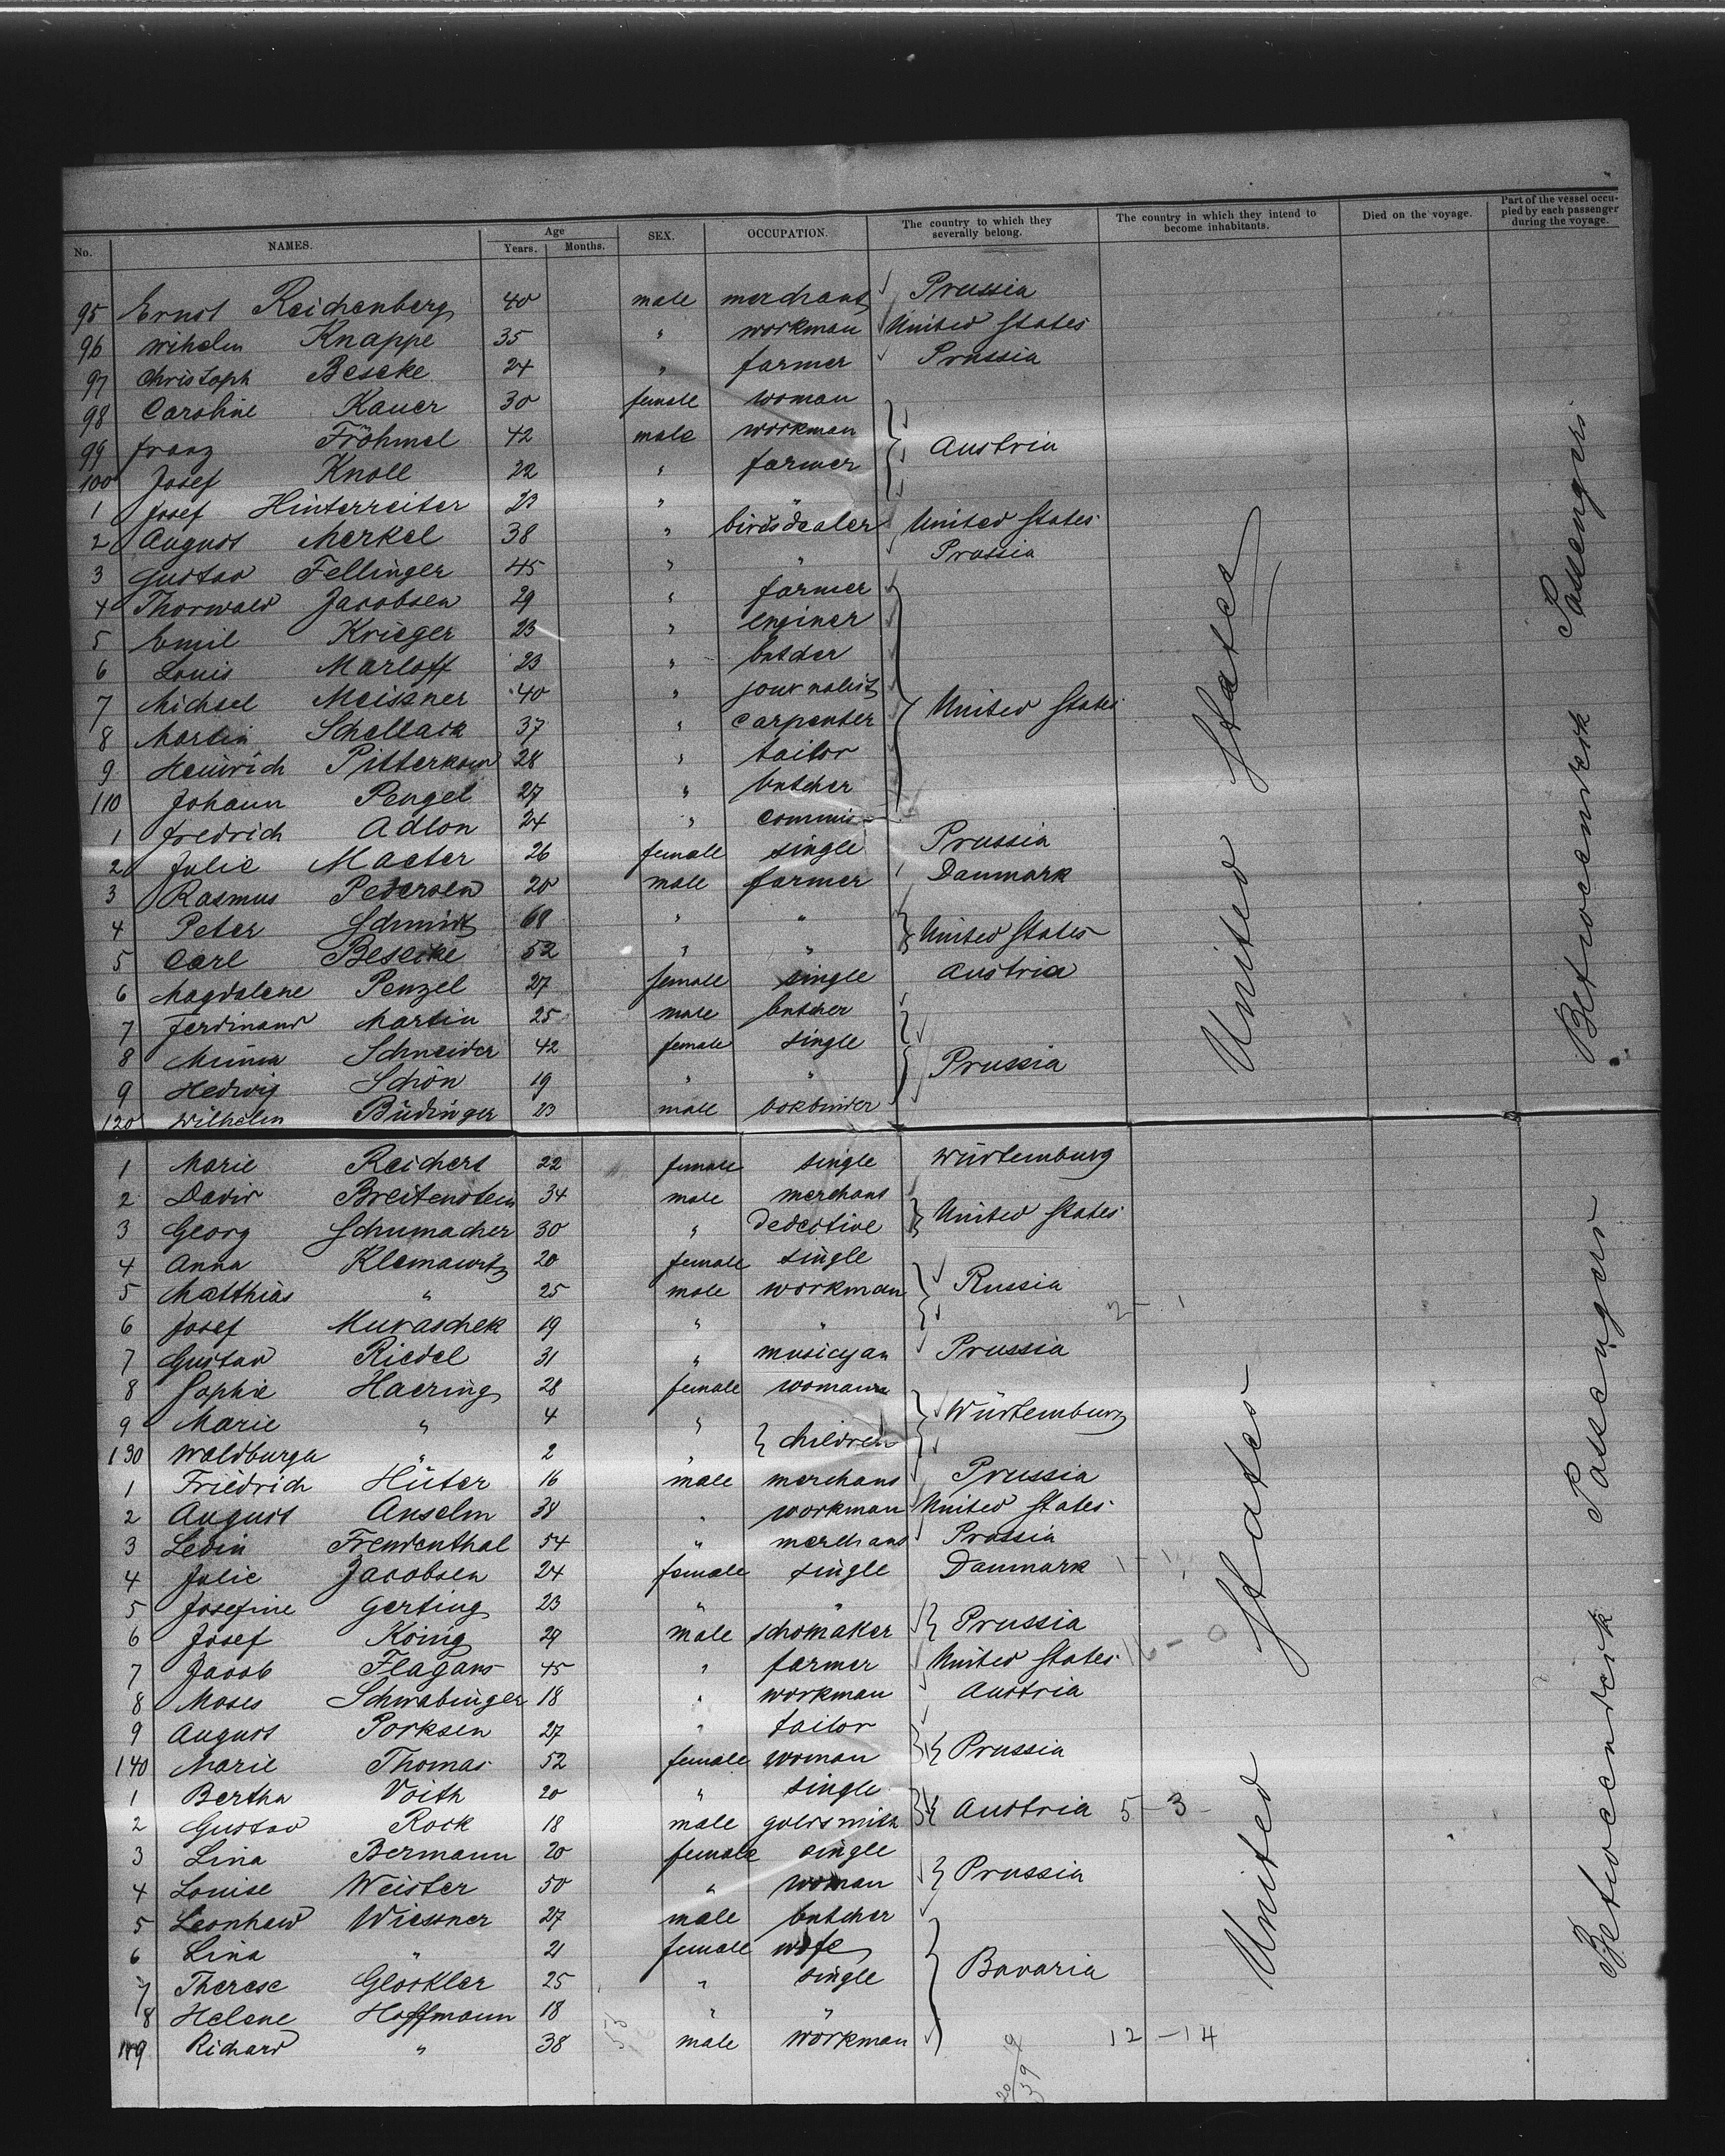 No. NAMES. Age Years. Months. SEX. OCCUPATION. The country to which they severally belong. The country in which they intend to become inhabitants. Died on the voyage. Part of the vessel occupied by each passenger during the voyage.
95 Ernst Reichenberg 40 male merchant Prussia
96 Wihelm Knappe 35 " workman United States
97 Christoph Beseke 24 " farmer Prussia
98 Caroline Kauer 30 female woman
99 Franz Fröhmel 42 male workman Austria
100 Josef Knoll 22 " farmer
1 Josef Hinterreiter 23 " "
2 August Merkel 38 " birdsdealer United States
3 Gustav Fellinger 45 " " Prussia
4 Thorwald Jacobsen 29 " farmer
5 Emil Krieger 23 " enginer
6 Louis Marloff 23 " butcher
7 Michael Meissner 40 " journalist United States
8 Martin Schellack 37 " carpenter
9 Heinrich 28 " tailor
110 Johann Pengel 27 " butcher
1 Fredrich Adlon 24 " commis
2 Julie Maeter 26 female single Prussia
3 Rasmus Pedersen 20 male farmer Danmark
4 Peter Schmidt 68 " " United States
5 Carl Beseike 52 " "
6 Magdalene Penzel 27 female single Austria
7 Ferdinand Martin 25 male butcher
8 Minna Schneider 42 female single Prussia
9 Hedwig Schön 19 " "
120 Wilhelm Büdinger 23 male bokbinder
United States
Betweendeck Passengers
1 Marie Reichert 22 female single Würtemburg
2 David Breitenstein 34 male merchant United States
3 Georg Schumacher 30 " dedective
4 Anna Klemawitz 20 female single
5 Matthias " 25 male workman Russia 2 - 1
6 Josef Muraschek 19 " "
7 Gustav Riedel 31 " musicyan Prussia
8 Sophie Haering 28 female woman
9 Marie " 4 " children Würtemburg
130 Waldburga " 2 "
1 Friedrich Hüter 16 male merchant Prussia
2 August Anselm 38 " workman United States
3 Levin Freudenthal 54 " merchant Prussia
4 Julie Jacobsen 24 female single Danmark
5 Josefine Gerting 23 " "
6 Josef König 29 male schomaker Prussia
7 Jacob 45 " farmer United States
8 Moses Schwabinger 18 " workman Austria
9 August Porksen 27 " tailor
140 Marie Thomas 52 female woman Prussia
1 Bertha Voith 20 " single
2 Gustav Rock 18 male goldsmith Austria 5 - 3 -
3 Lina Bermann 20 female single
4 Louise Weister 50 " woman Prussia
5 Leonhard Wiessner 27 male butcher
6 Lina " 21 female wife
7 Therese Glockler 25 " single Bavaria
8 Helene Hoffmann 18 " "
149 Richard " 38 male workman 12 - 14
United States
Betweendeck Passengers